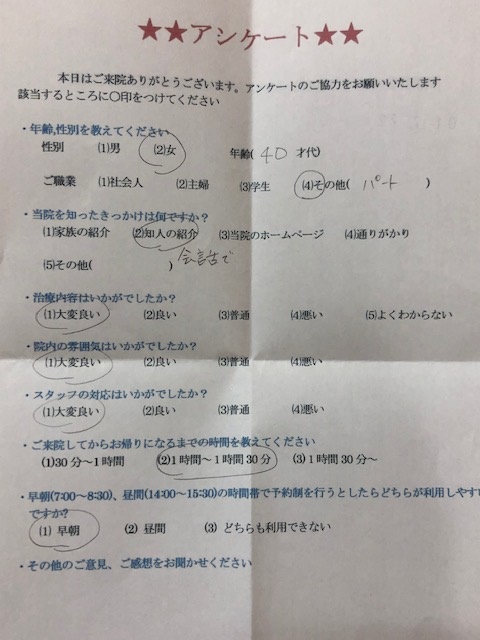 ★★アンケート★★
本日はご来院ありがとうございます。アンケートのご協力をお願いいたします
該当するところに〇印をつけてください
・年齢,性別を教えてください
性別 (1)男 (2)女 年齢( 40 才代)
ご職業 (1)社会人 (2)主婦 (3)学生 (4)その他( パート )
・当院を知ったきっかけは何ですか?
(1)家族の紹介 (2)知人の紹介 (3)当院のホームページ (4)通りがかり
(5)その他( ) 会話で
・治療内容はいかがでしたか?
(1)大変良い (2)良い (3)普通 (4)悪い (5)よくわからない
・院内の雰囲気はいかがでしたか?
(1)大変良い (2)良い (3)普通 (4)悪い
・スタッフの対応はいかがでしたか?
(1)大変良い (2)良い (3)普通 (4)悪い
・ご来院してからお帰りになるまでの時間を教えてください
(1)30分~1時間 (2)1時間~1時間30分 (3)1時間30分~
・早朝(7:00~8:30)、昼間(14:00~15:30)の時間帯で予約制を行うとしたらどちらが利用しやす
ですか?
(1) 早朝 (2) 昼間 (3) どちらも利用できない
・その他のご意見、ご感想をお聞かせください